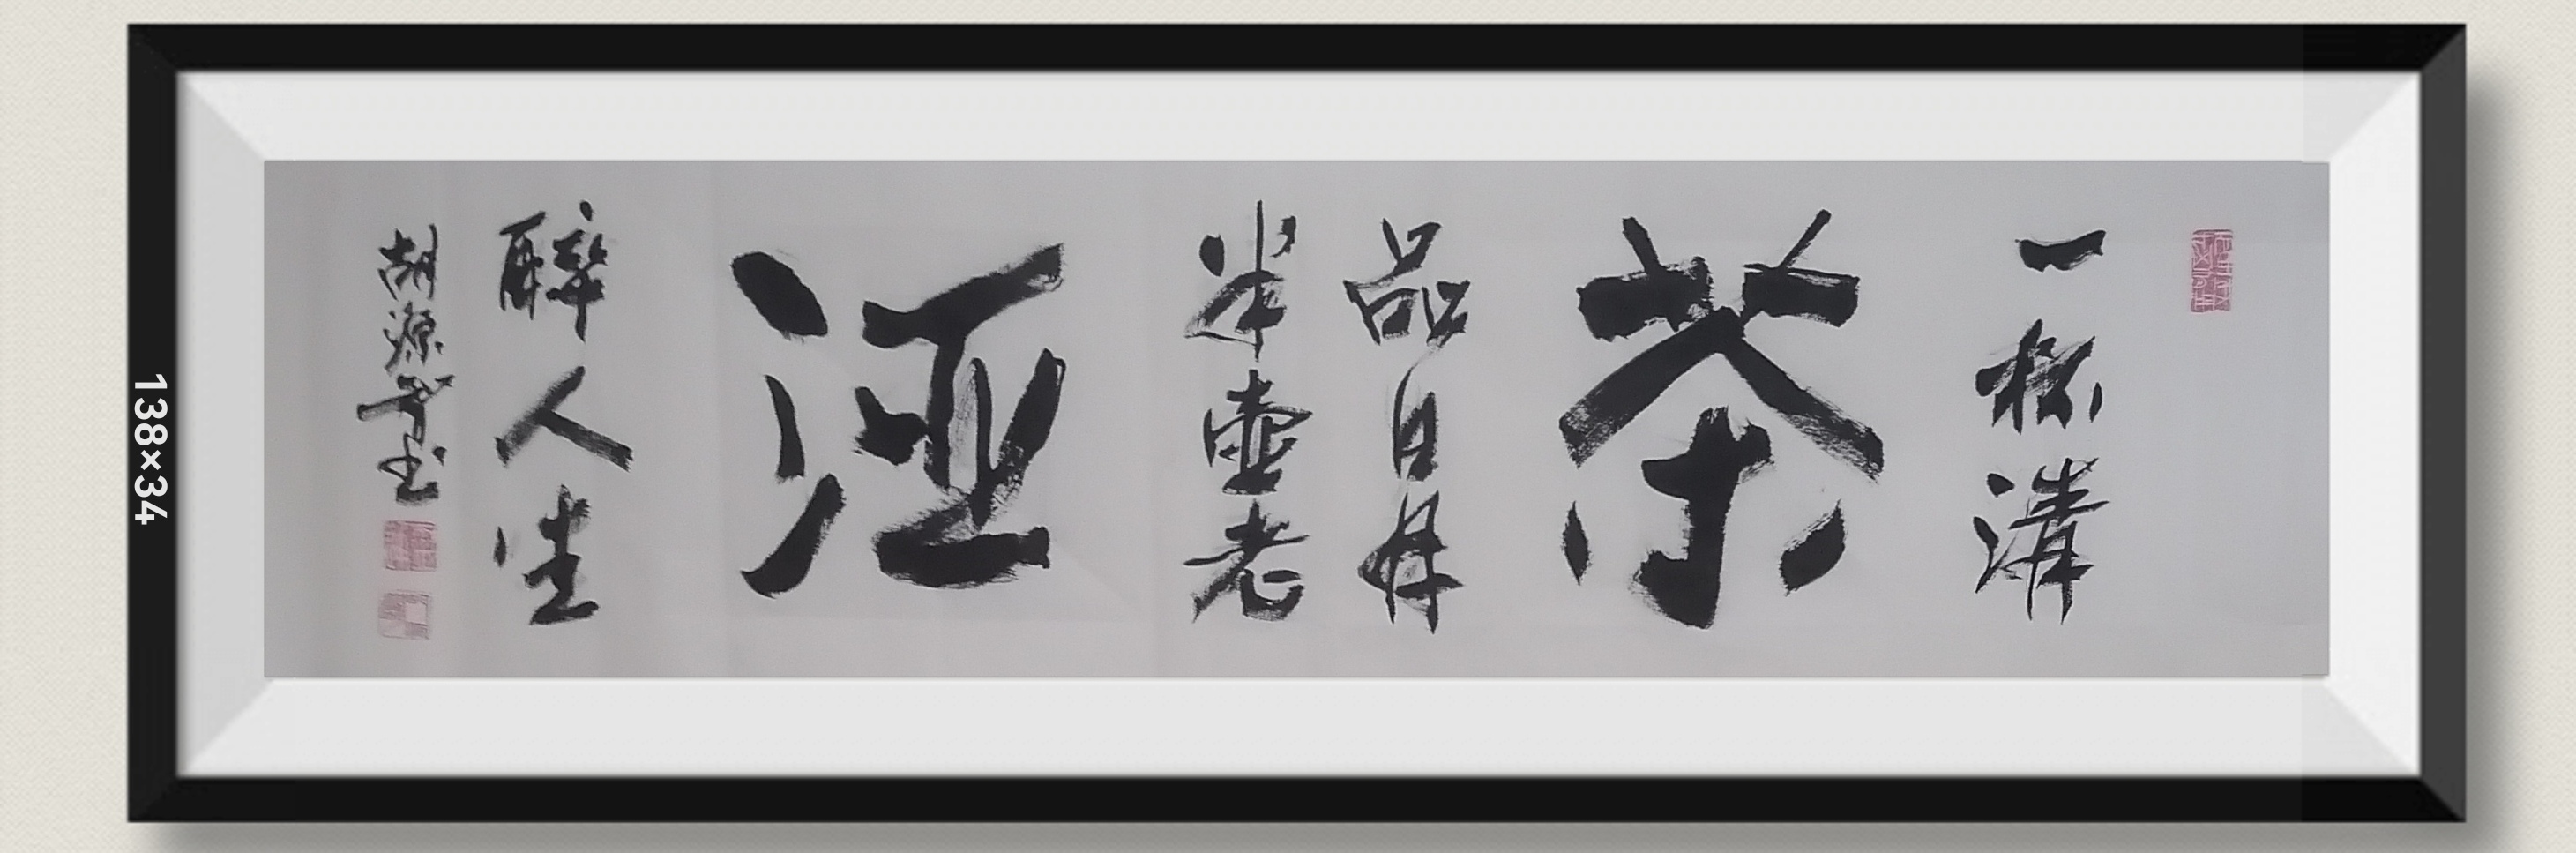 一杯清
茶
品日月
半壺老
酒
醉人生
胡源
138×34